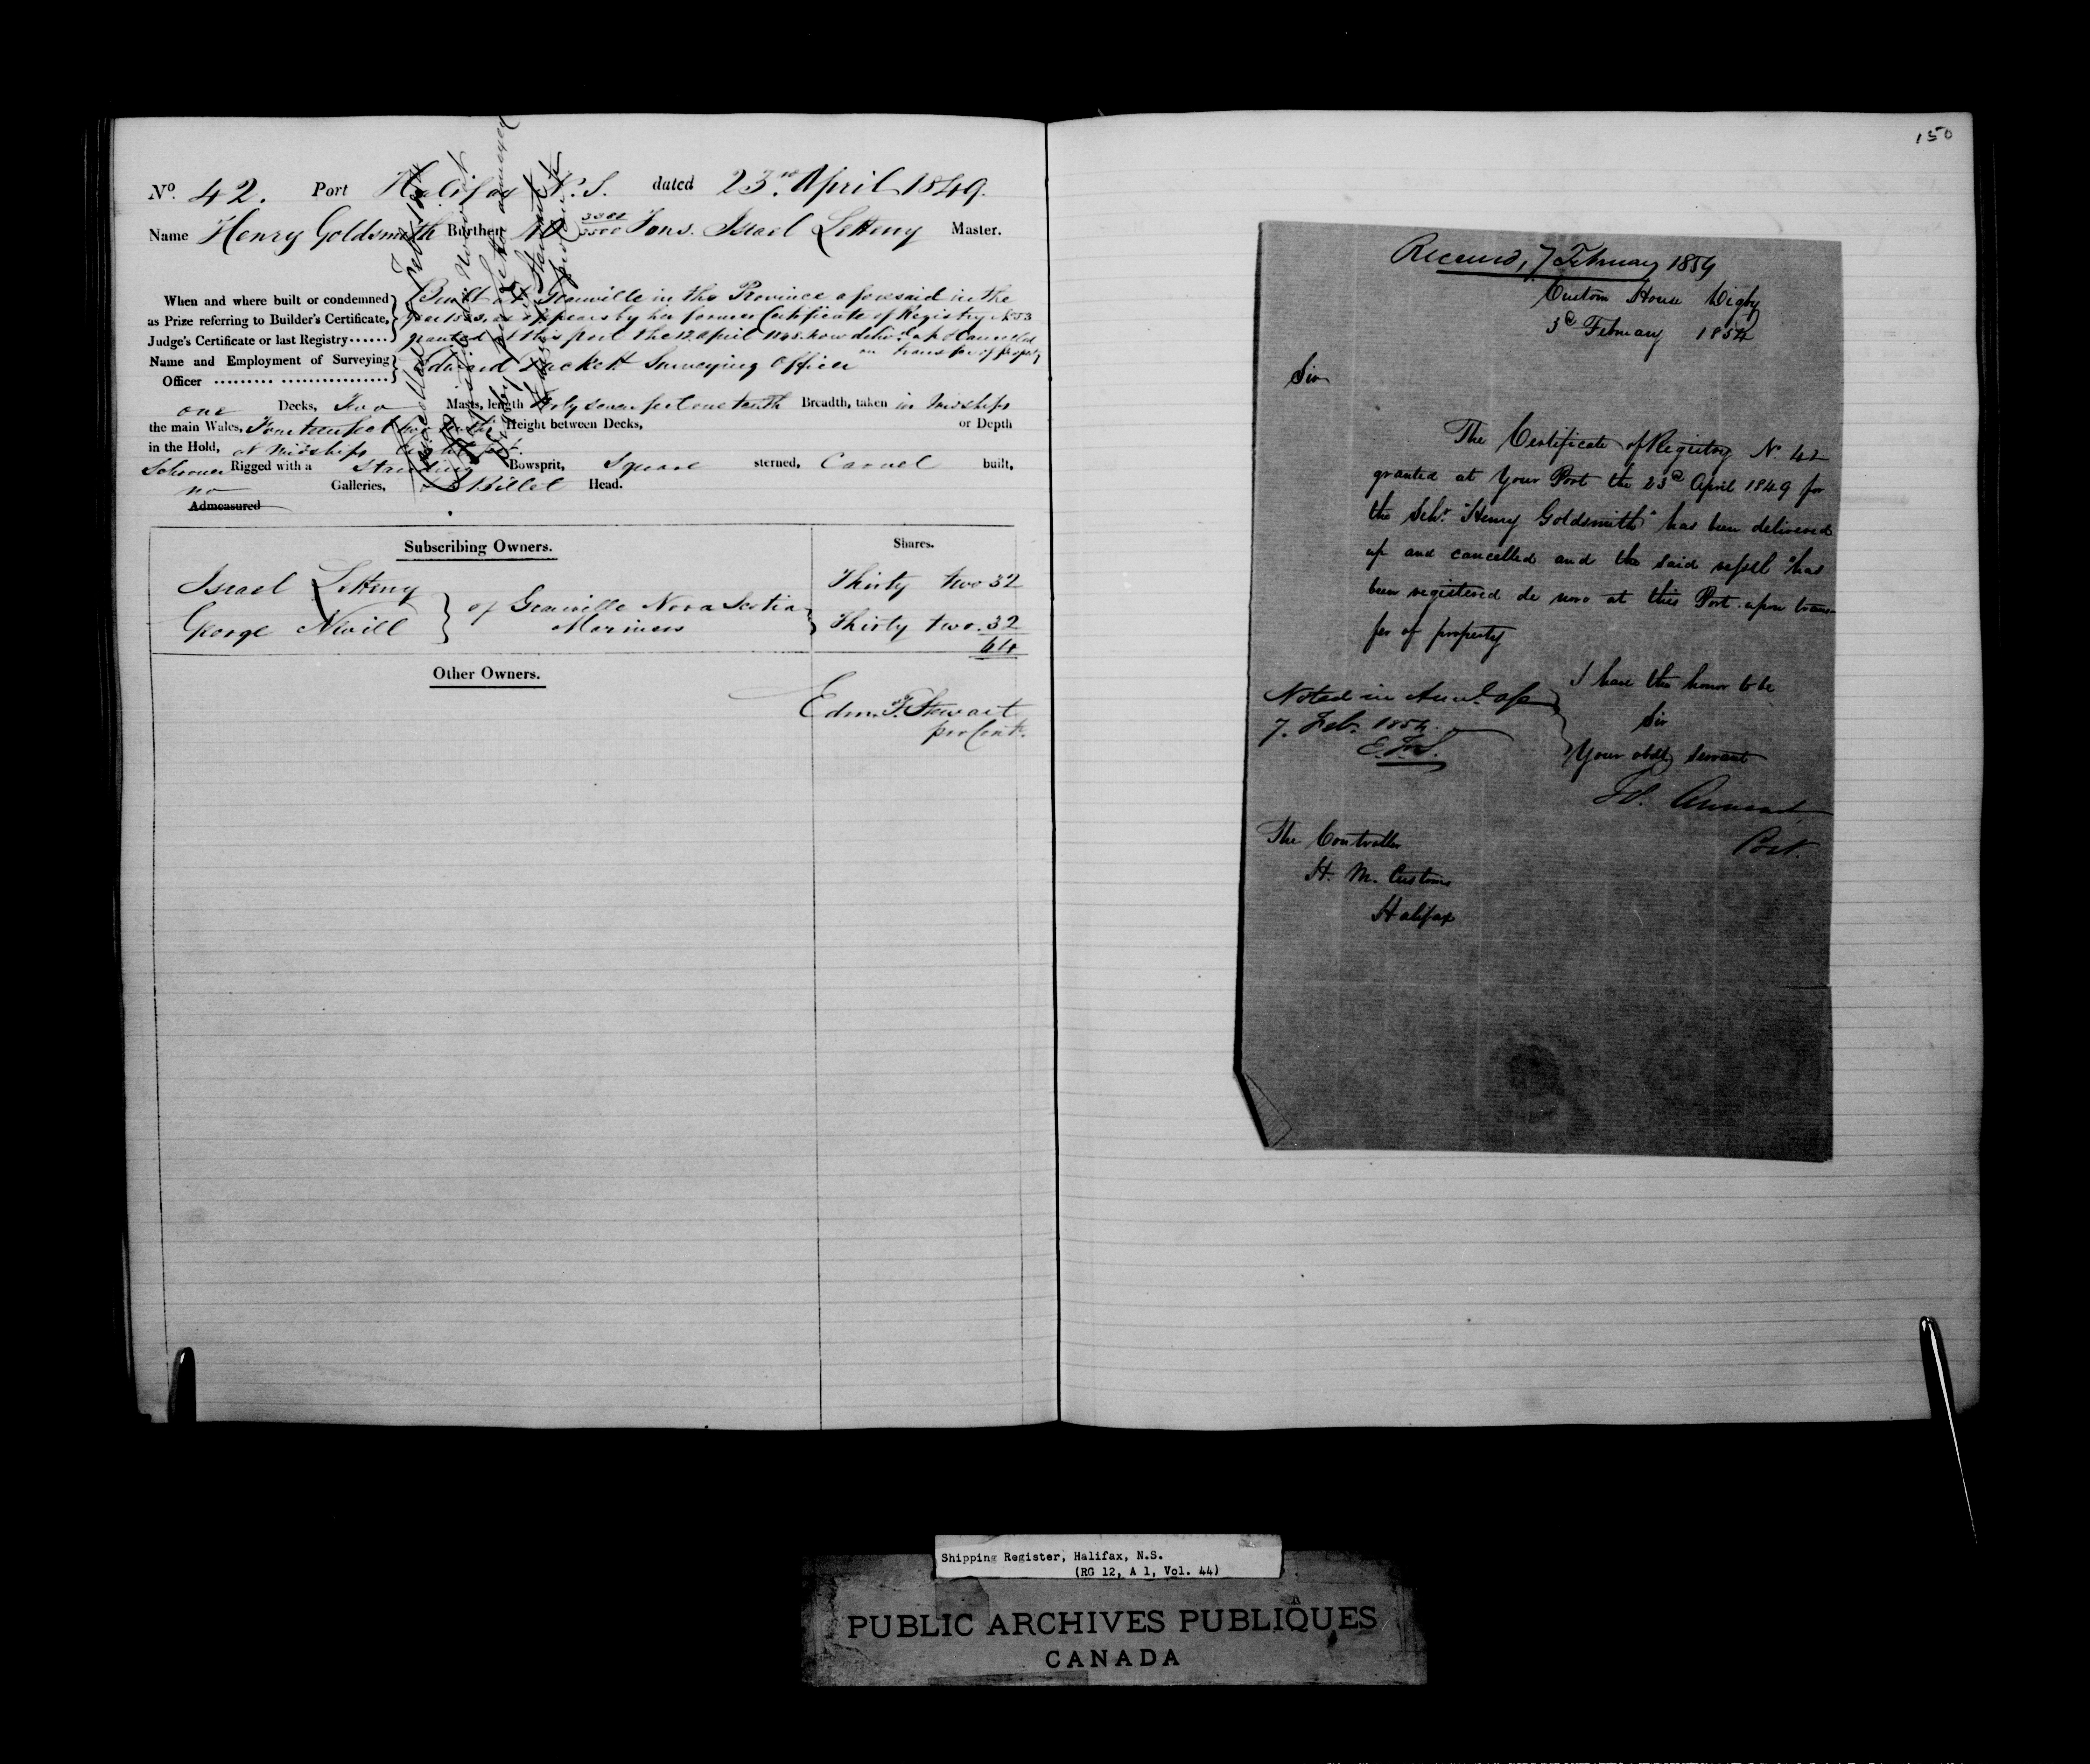 150
No. 42. Port Halifax N.S. dated 23rd April 1849.
Name Henry Goldsmith Burthen Tons. Israel Letteny Master.
When and where built or condemned as Prize referring to Builder's Certificate, Judge's Certificate or last Registry......
Built at Granville in the Province aforesaid in the
as appears by her former Certificate of Registry No 53
granted at this port the 12 April now deliv'd up & Cancelled
on transfer of property
Name and Employment of Surveying Officer
Edward Hackett Surveying Officer
one Decks, Two Masts, length Forty seven feet one tenth Breadth, taken in Midships
the main Wales, feet Height between Decks, or Depth
in the Hold, at Midships feet.
Schooner Rigged with a Standing Bowsprit, Square sterned, Carvel built,
no Galleries, Billet Head.
Admeasured
Subscribing Owners. Shares.
Israel Letteny Thirty two 32
of Granville Nova Scotia
George Nevill Mariners Thirty two 32
64
Other Owners.
Edm. F. Stewart
per Cont.
Received, 7 February 1854
Custom House Digby
3d February 1854
Sir
The Certificate of Registry N. 42
granted at Your Port the 23d April 1849 for
the Schr "Henry Goldsmith" has been delivered
up and cancelled and the said vessel has
been registered de novo at this Port upon trans-
fer of property
I have the honor to be
Sir
Your obdt servant
Noted in
7. Feb. 1854.
E.F.S.
The Controller
H. M. Customs
Halifax
Shipping Register, Halifax, N.S.
(RG 12, A 1, Vol. 44)
PUBLIC ARCHIVES PUBLIQUES
CANADA